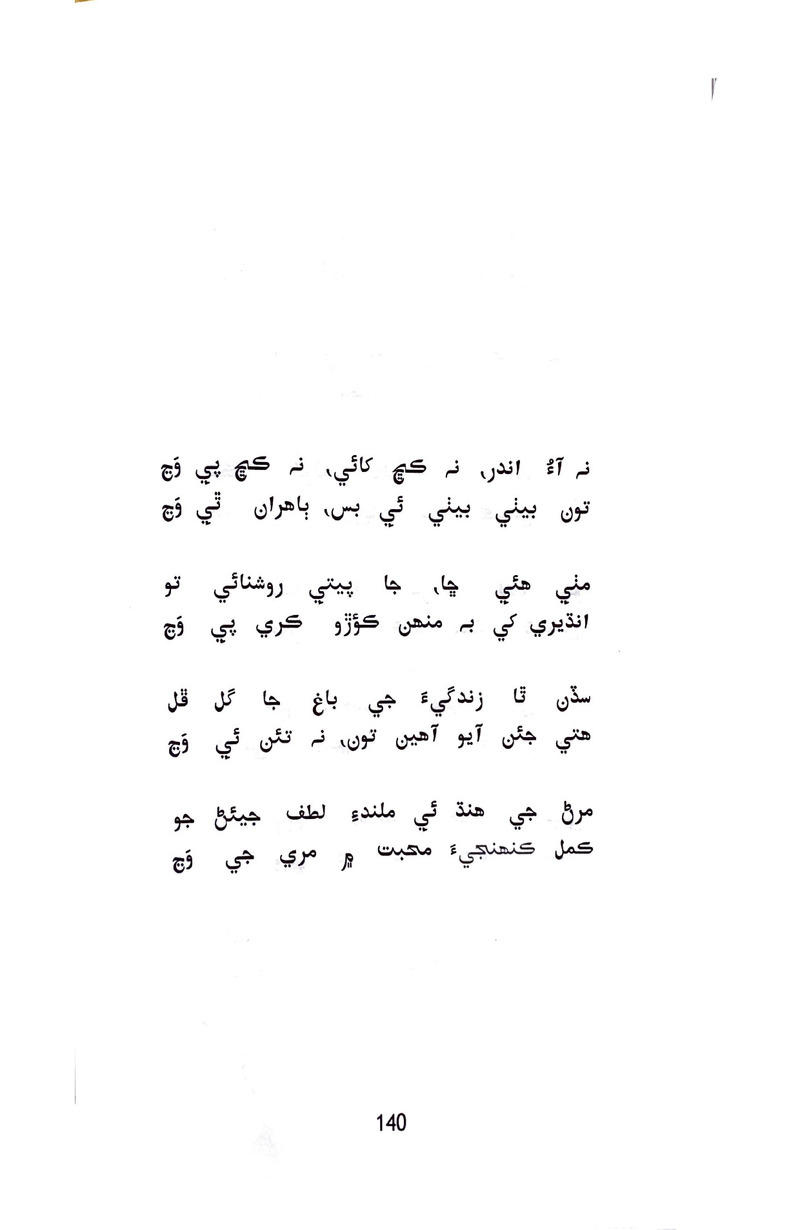 نہ آءُ اندر، نہ ڪڇ کائي، نہ ڪڇ پي وَڃ
تون بيٺي بيٺي ئي بس، ٻاهران ٿي وَڃ
مٺي هئي ڇا، جا پيتي روشنائي تو
انڌيري کي بہ منهن ڪؤڙو ڪري پي وَڃ
سڏن ٿا زندگيءَ جي باغ جا گل ڦل
هتي جئن آيو آهين تون، نہ تئن ئي وَڃ
مرڻ جي هنڌ ئي ملندءِ لطف جيئڻ جو
ڪمل ڪنهنجيءَ محبت ۾ مري جي وَڃ
140